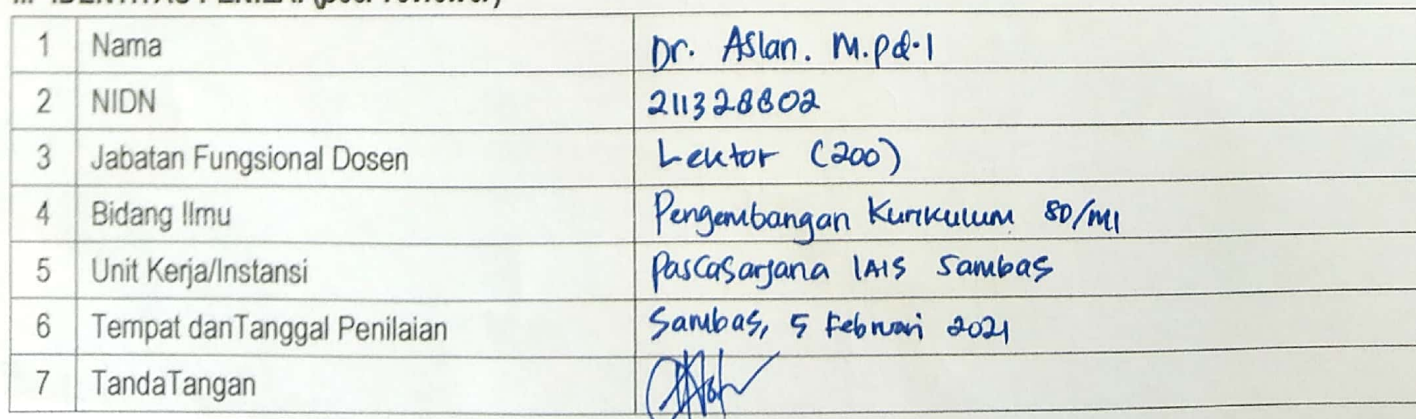 1 Nama Dr. Aslan. M.pd.I
2 NIDN 211328802
3 Jabatan Fungsional Dosen Lektor (200)
4 Bidang Ilmu Pengembangan Kurikulum SD/MI
5 Unit Kerja/Instansi Pascasarjana IAIS Sambas
6 Tempat danTanggal Penilaian Sambas, 5 Februari 2021
7 TandaTangan